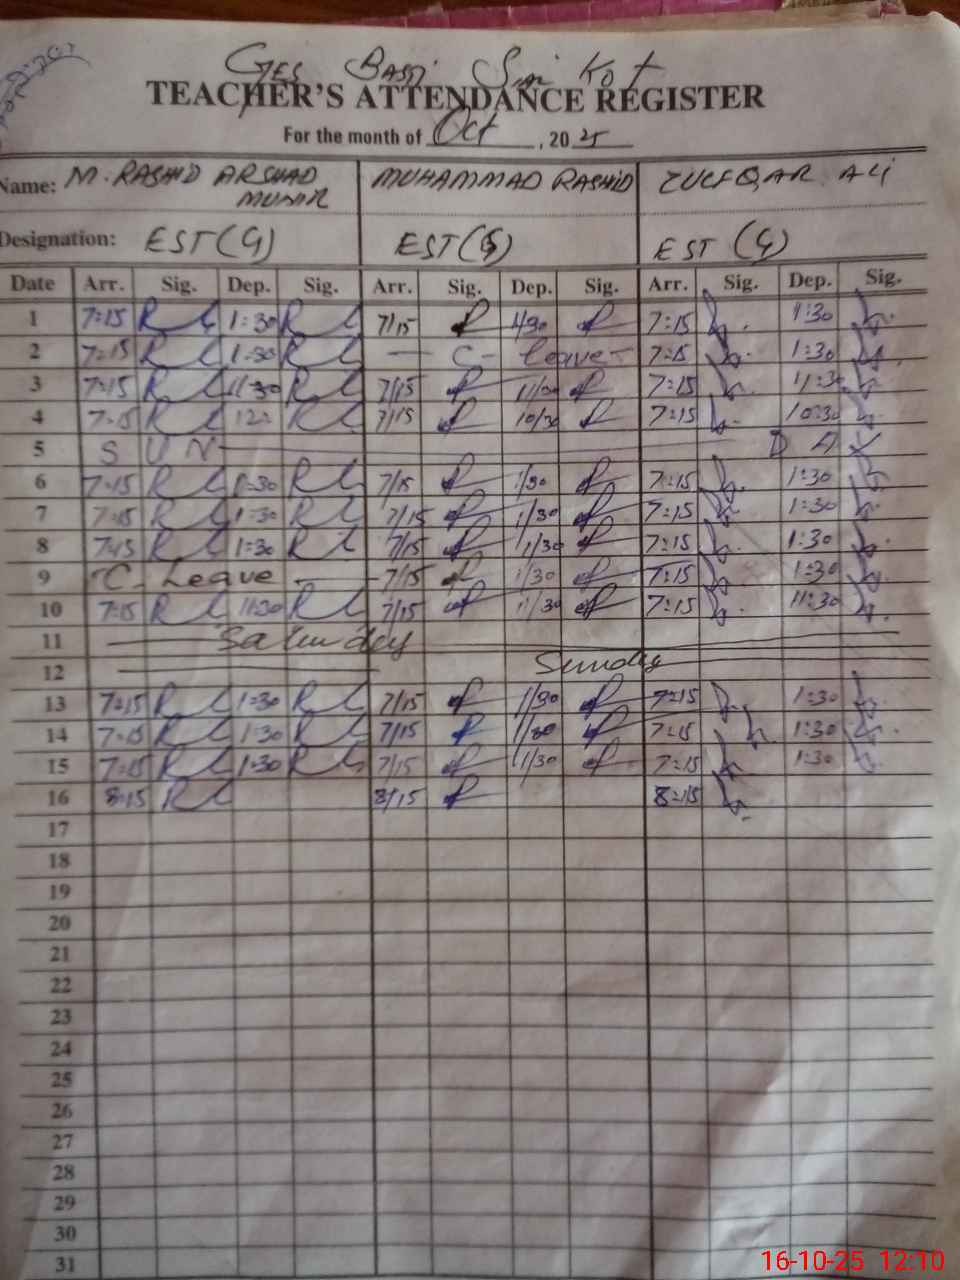 GES Basti
TEACHER'S ATTENDANCE REGISTER
For the month of Oct, 2025
Name: M. RASHID ARSHAD MUNIR MUHAMMAD RASHID ZULFQAR ALI
Designation: EST(G) EST(G) EST (G)
Date Arr. Sig. Dep. Sig. Arr. Sig. Dep. Sig. Arr. Sig. Dep. Sig.
1 7:15 1:30 7/15 7:15 1:30
2 7:15 1:30 — C- leave- 7:15 1:30
3 7:15 11:30 7/15 11/30 7:15 11:30
4 7:15 7/15 10/30 7:15 10:30
5 S U N D A Y
6 7:15 1:30 7/15 1/30 7:15 1:30
7 7:15 1:30 7/15 1/30 7:15 1:30
8 7:15 1:30 7/15 1/30 7:15 1:30
9 -C- Leave - 7/15 1/30 7:15 1:30
10 7:15 11:30 7/15 11/30 7:15 11:30
11 Saturday
12 Sunday
13 7:15 1:30 7/15 1/30 7:15 1:30
14 7:15 1:30 7/15 1/30 7:15 1:30
15 7:15 1:30 7/15 1/30 7:15 1:30
16 8:15 8/15 8:15
17
18
19
20
21
22
23
24
25
26
27
28
29
30
31
16-10-25 12:10